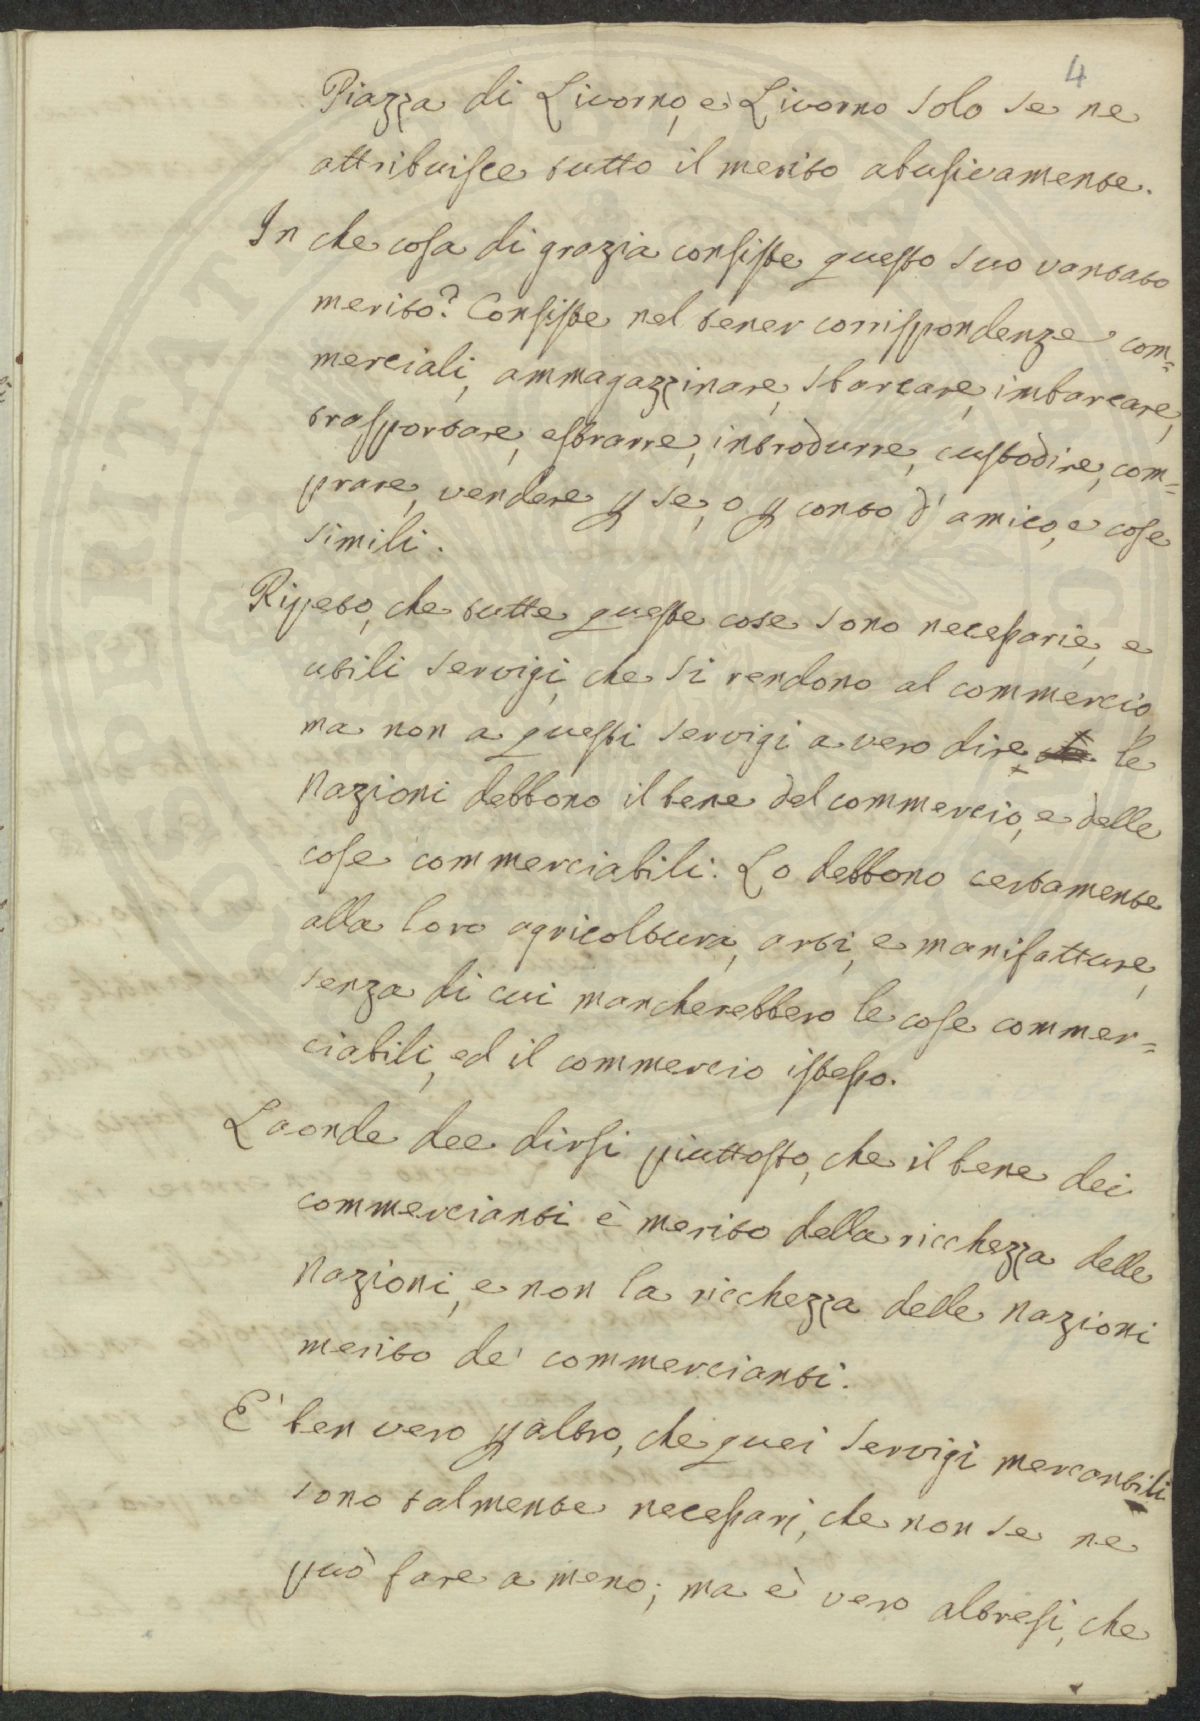 4
Piazza di Livorno, e Livorno solo se ne
attribuisce tutto il merito abusivamente.
In che cosa di grazia consiste questo suo vantato
merito? Consiste nel tener corrispondenze com=
merciali, ammagazzinare, sbarcare, imbarcare,
trasportare, estrarre, introdurre, custodire, com=
prare, vendere p se, o p conto d'amico, e cose
simili.
Ripeto, che tutte queste cose sono necessarie, e
utili servigi, che si rendono al commercio,
ma non a questi servigi a vero dire le
Nazioni debbono il bene del commercio, e delle
cose commerciabili. Lo debbono certamente
alla loro agricoltura, arti, e manifatture,
senza di cui mancherebbero le cose commer=
ciabili, ed il commercio istesso.
Laonde dee dirsi piuttosto, che il bene dei
commercianti è merito della ricchezza delle
Nazioni, e non la ricchezza delle Nazioni
merito de' commercianti.
E' ben vero p altro, che quei servigi mercantili
sono talmente necessarj, che non se ne
può fare a meno; ma è vero altresì, che